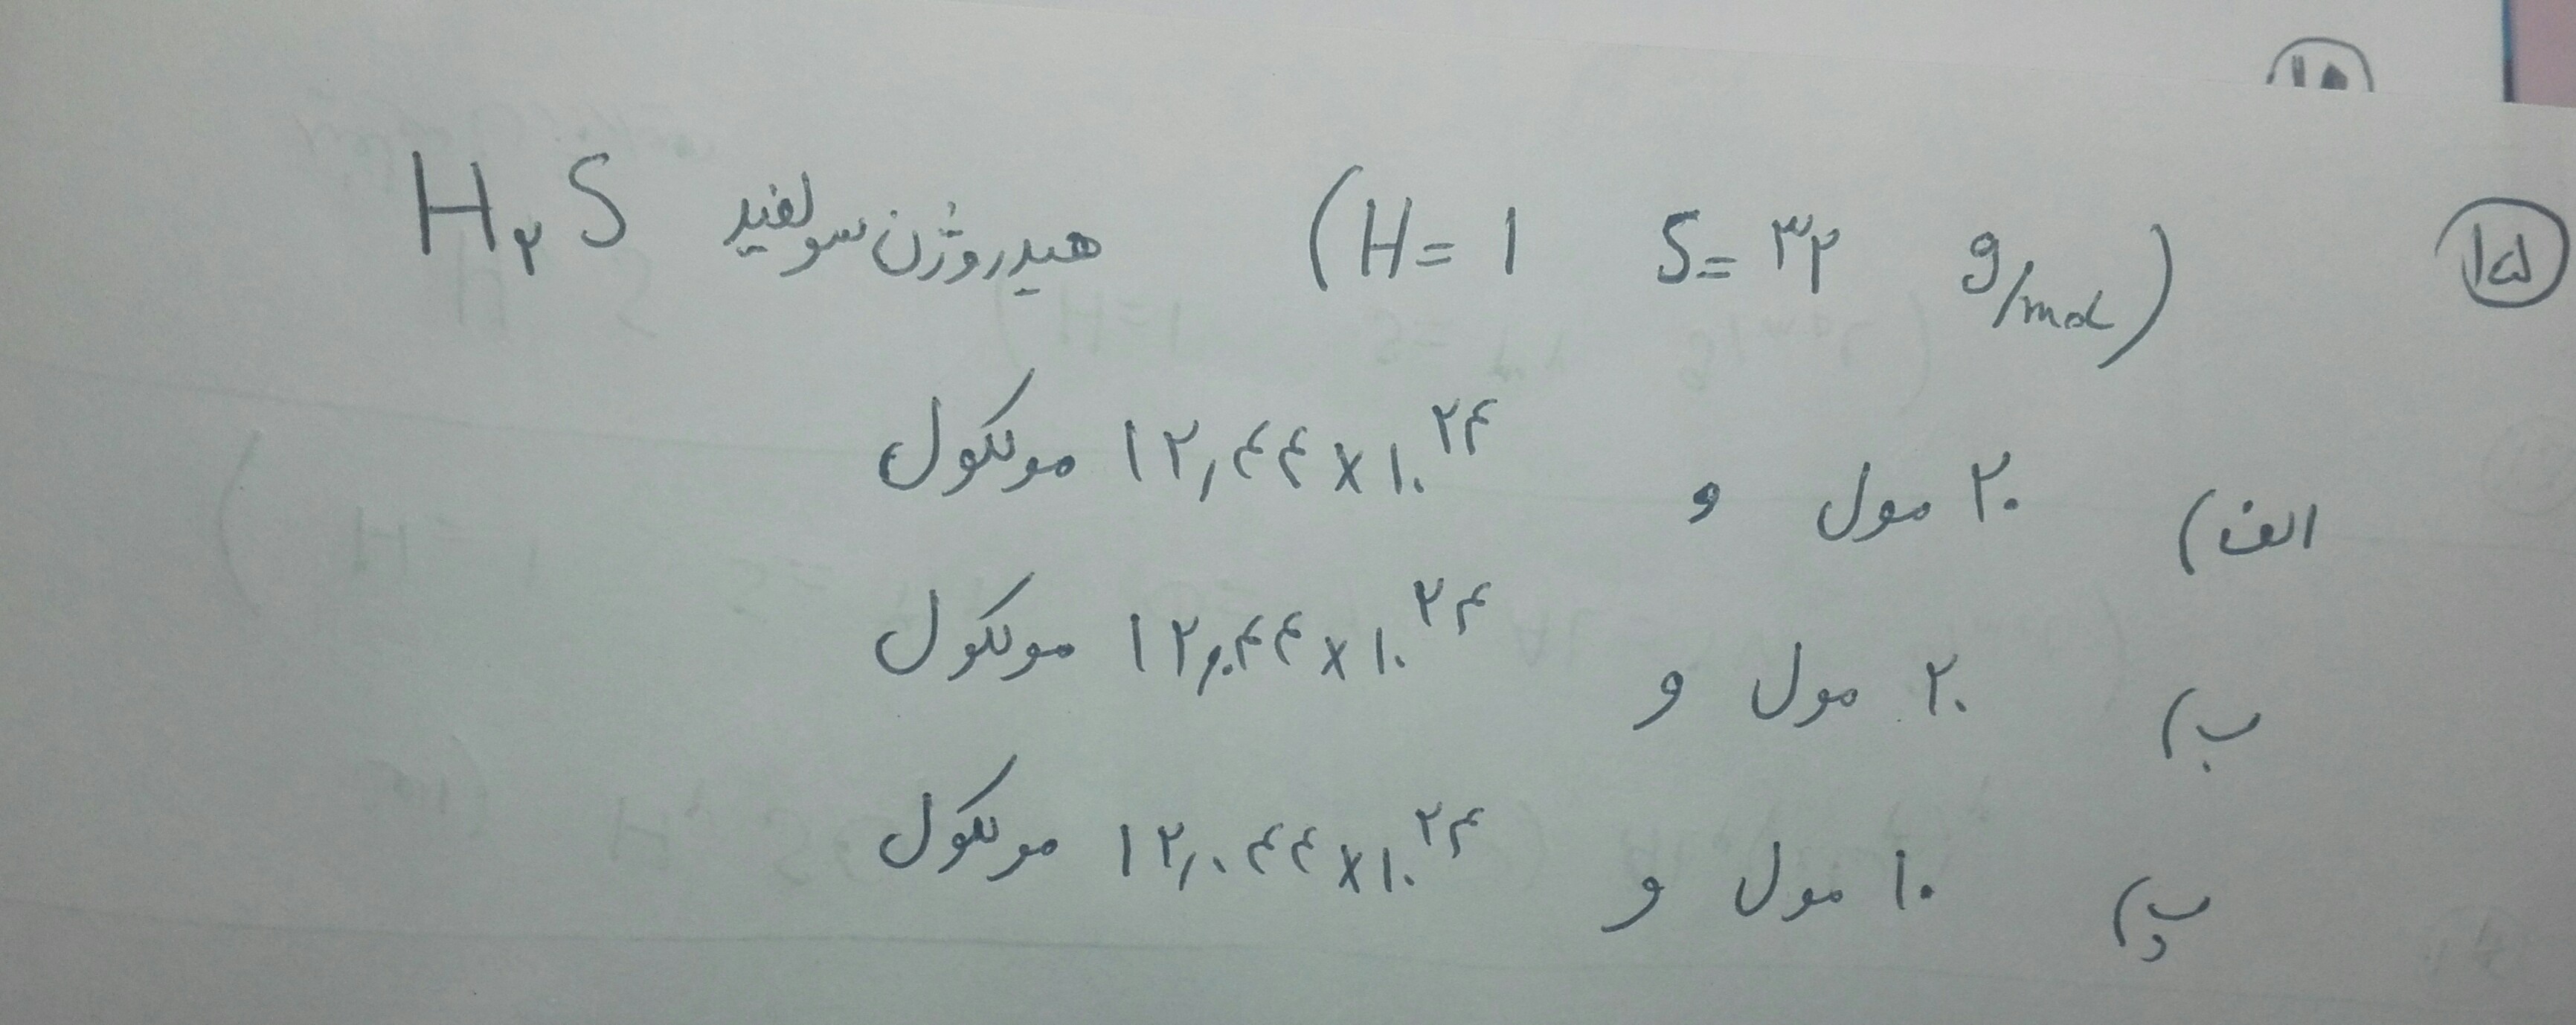 ۱۵ (H = ۱ S = ۳۲ g/mol) هیدروژن سولفید H₂S
الف) ۲۰ مول و ۱۲,۴۴ × ۱۰^۲۴ مولکول
ب) ۲۰ مول و ۱۲,۰۴۴ × ۱۰^۲۴ مولکول
پ) ۱۰ مول و ۱۲,۰۴۴ × ۱۰^۲۴ مولکول